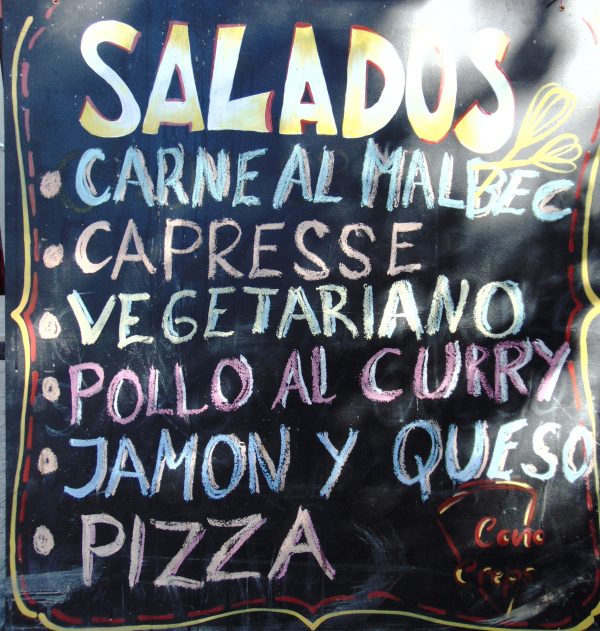 SALADOS
CARNE AL MALBEC
CAPRESSE
VEGETARIANO
POLLO AL CURRY
JAMON Y QUESO
PIZZA
Cono
Creps